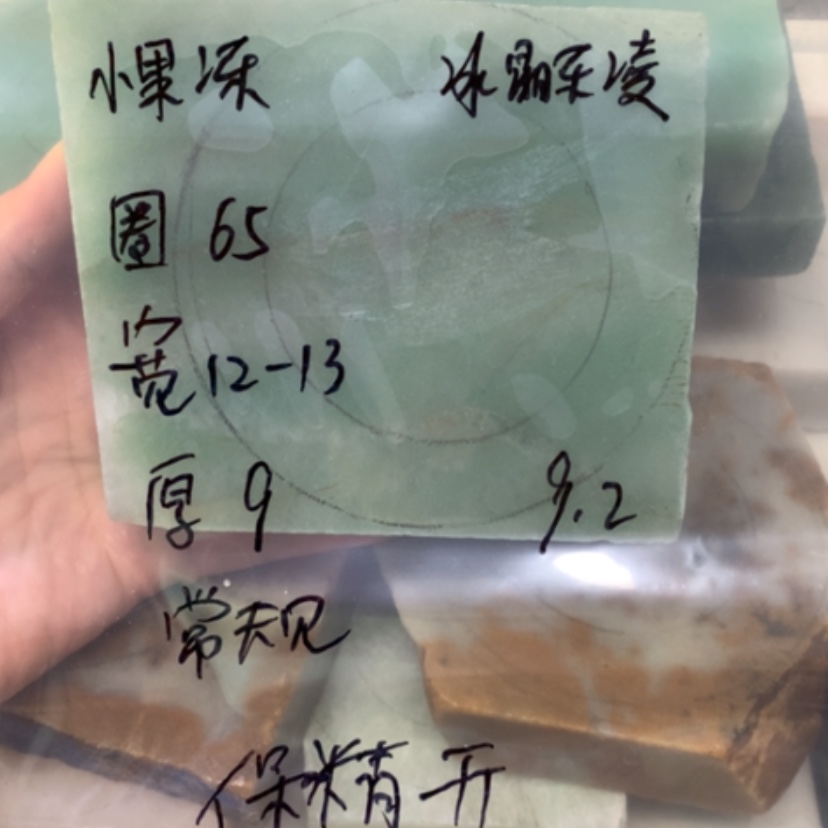 小果冻 冰翡东凌
圈 65
宽 12-13
厚 9 9.2
常规
保精开